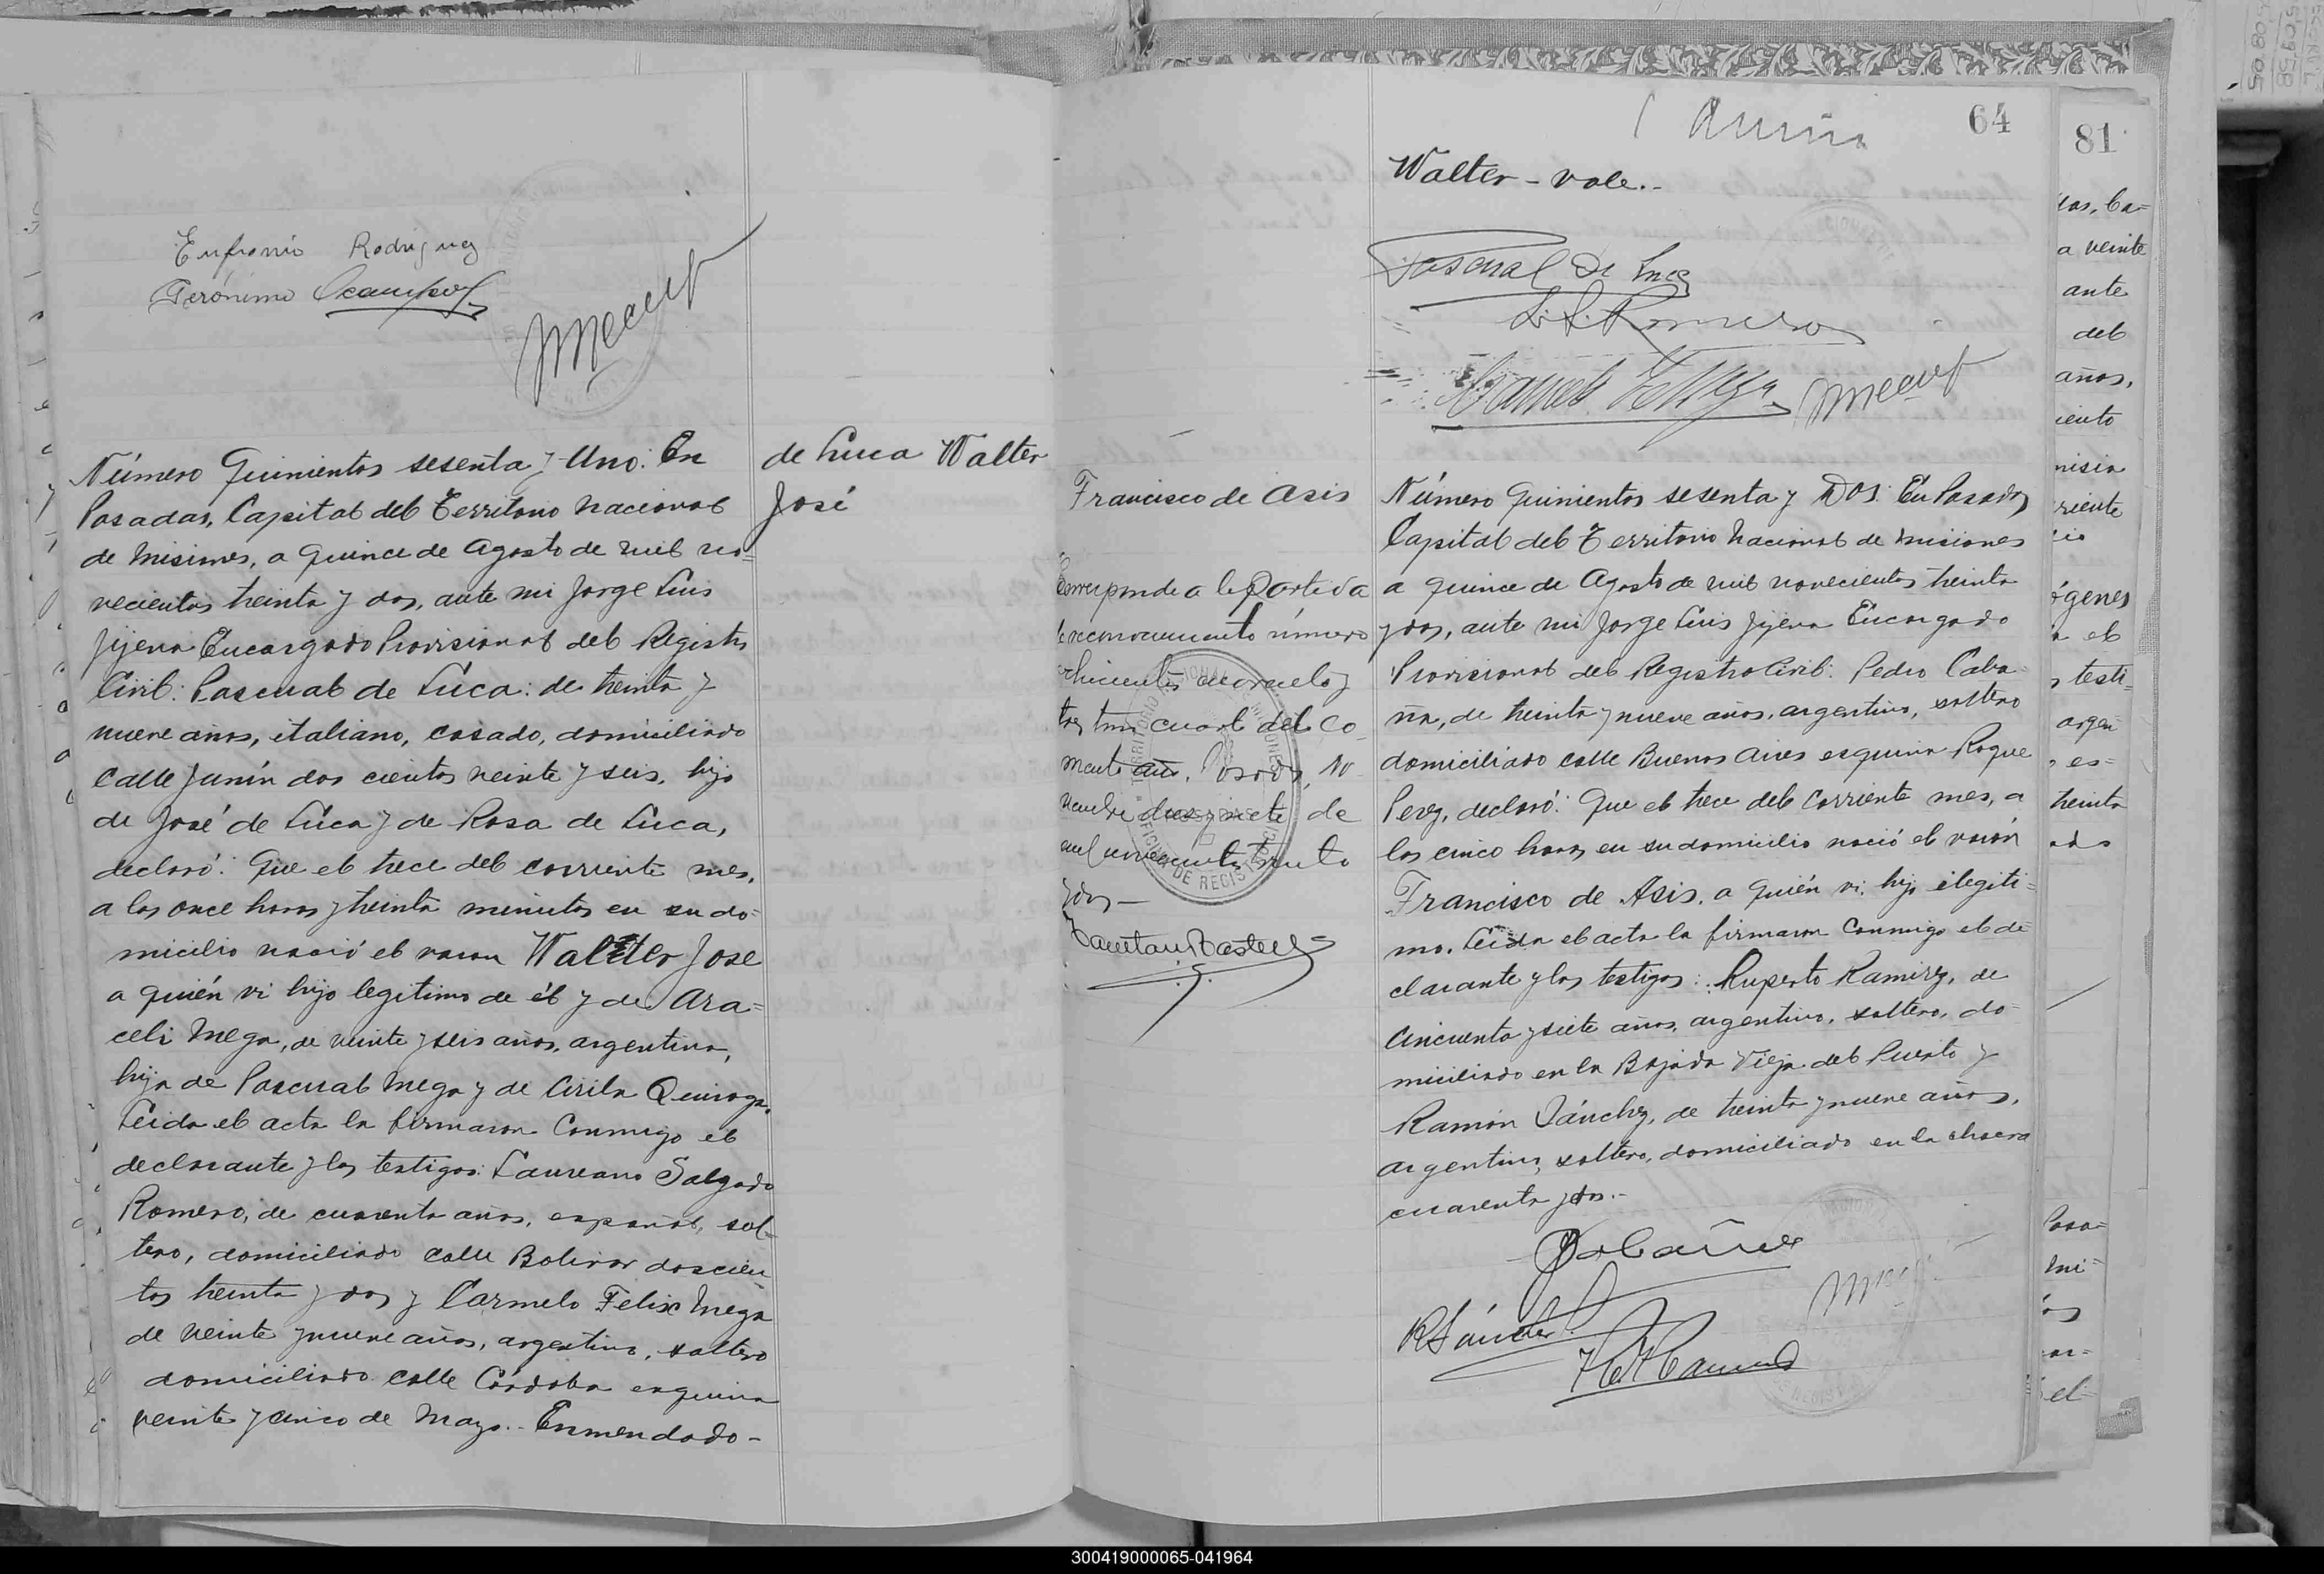 Eufronio Rodriguez
Gerónimo Ocampo
Número Quinientos sesenta y Uno: En
Posadas, Capital del Territorio Nacional
de Misiones, a quince de Agosto de mil no=
vecientos treinta y dos, ante mi Jorge Luis
Jijena Encargado Provisional del Registro
Civil: Pascual de Luca: de treinta y
nueve años, italiano, casado, domiciliado
calle Junín dos cientos veinte y seis, hijo
de José de Luca y de Rosa de Luca,
declaró: Que el trece del corriente mes,
a las once horas y treinta minutos en su do=
micilio nació el varon Walter José
a quién vi hijo legitimo de él y de Ara=
celi Mega, de veinte y seis años, argentina,
hija de Pascual Mega y de Cirila Quiroga.
Leida el acta la firmaron conmigo el
declarante y los testigos: Laureano Salgado
Romero, de cuarenta años, español, sol-
tero, domiciliado calle Bolivar doscien
tos treinta y dos y Carmelo Felix Mega
de veinte y nueve años, argentino, soltero
domiciliado calle Córdoba esquina
veinte y cinco de Mayo.- Enmendado-
de Luca Walter
José
64
Walter - vale.-
Pascual de Luca
L. S. Romero
Francisco de Asis
Corresponde a la Partida
de reconocimiento número
del co
mente año. Posadas, No
viembre diez y siete de
mil novecientos treinta
y dos-
Número Quinientos sesenta y Dos: En Posadas
Capital del Territorio Nacional de Misiones
a quince de Agosto de mil novecientos treinta
y dos, ante mi Jorge Luis Jijena Encargado
Provisional del Registro Civil: Pedro Caba=
ña, de treinta y nueve años, argentino, soltero
domiciliado calle Buenos Aires esquina Roque
Perez, declaró: Que el trece del corriente mes, a
las cinco horas en su domicilio nació el varón
Francisco de Asis, a quién vi, hijo ilegiti=
mo. Leida el acta la firmaron conmigo el de=
clarante y los testigos: Ruperto Ramirez, de
cincuenta y siete años, argentino, soltero, do=
miciliado en la Bajada Vieja del Puerto y
Ramón Sánchez, de treinta y nueve años,
argentino, soltero, domiciliado en la chacra
cuarenta y dos.-
P Cabaña
R Sánchez
81
a veinte
ante
del
años,
riente
el
testi=
es=
treinta
300419000065-041964